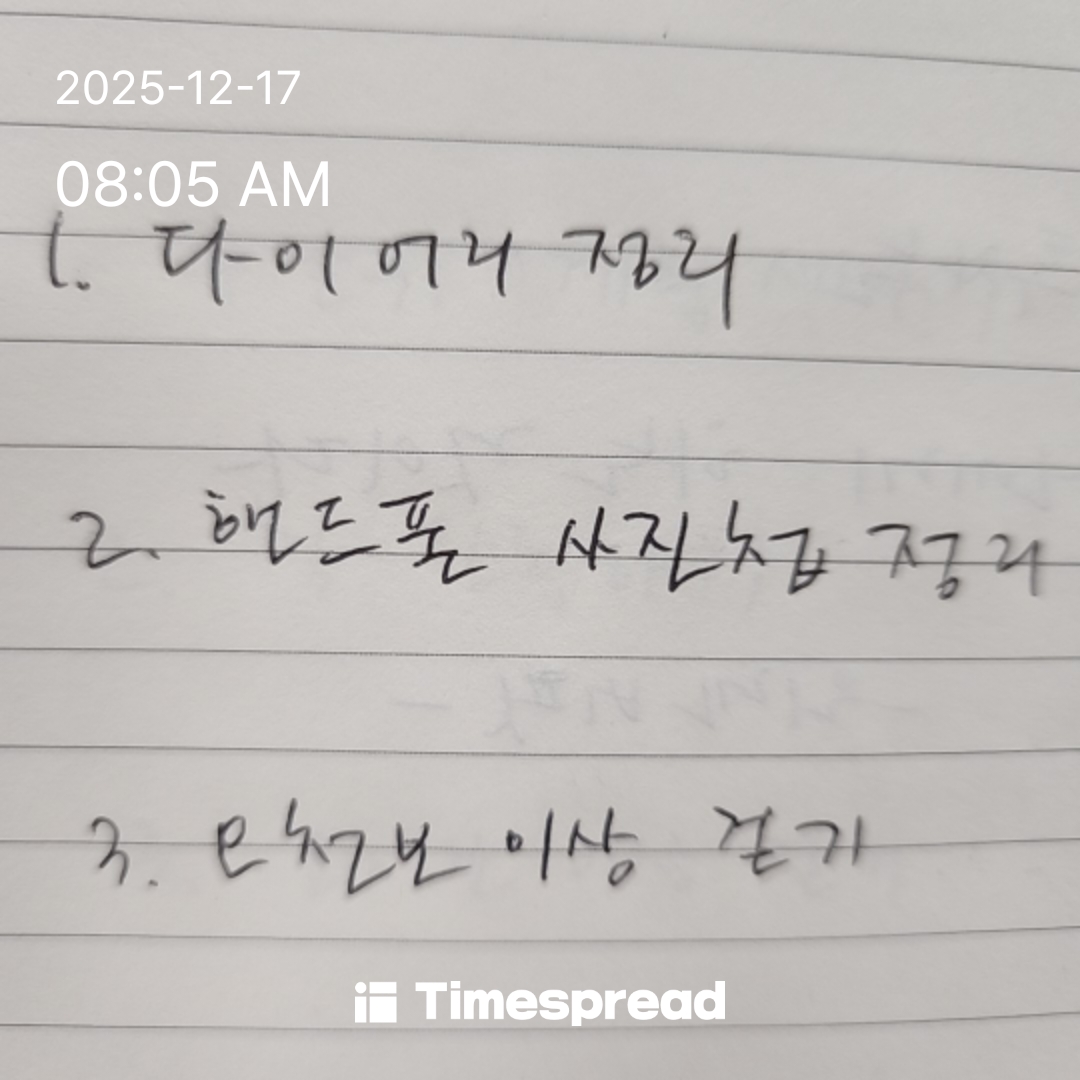 2025-12-17
08:05 AM
1. 다이어리 정리
2. 핸드폰 사진첩 정리
3. 오천보 이상 걷기
Timespread